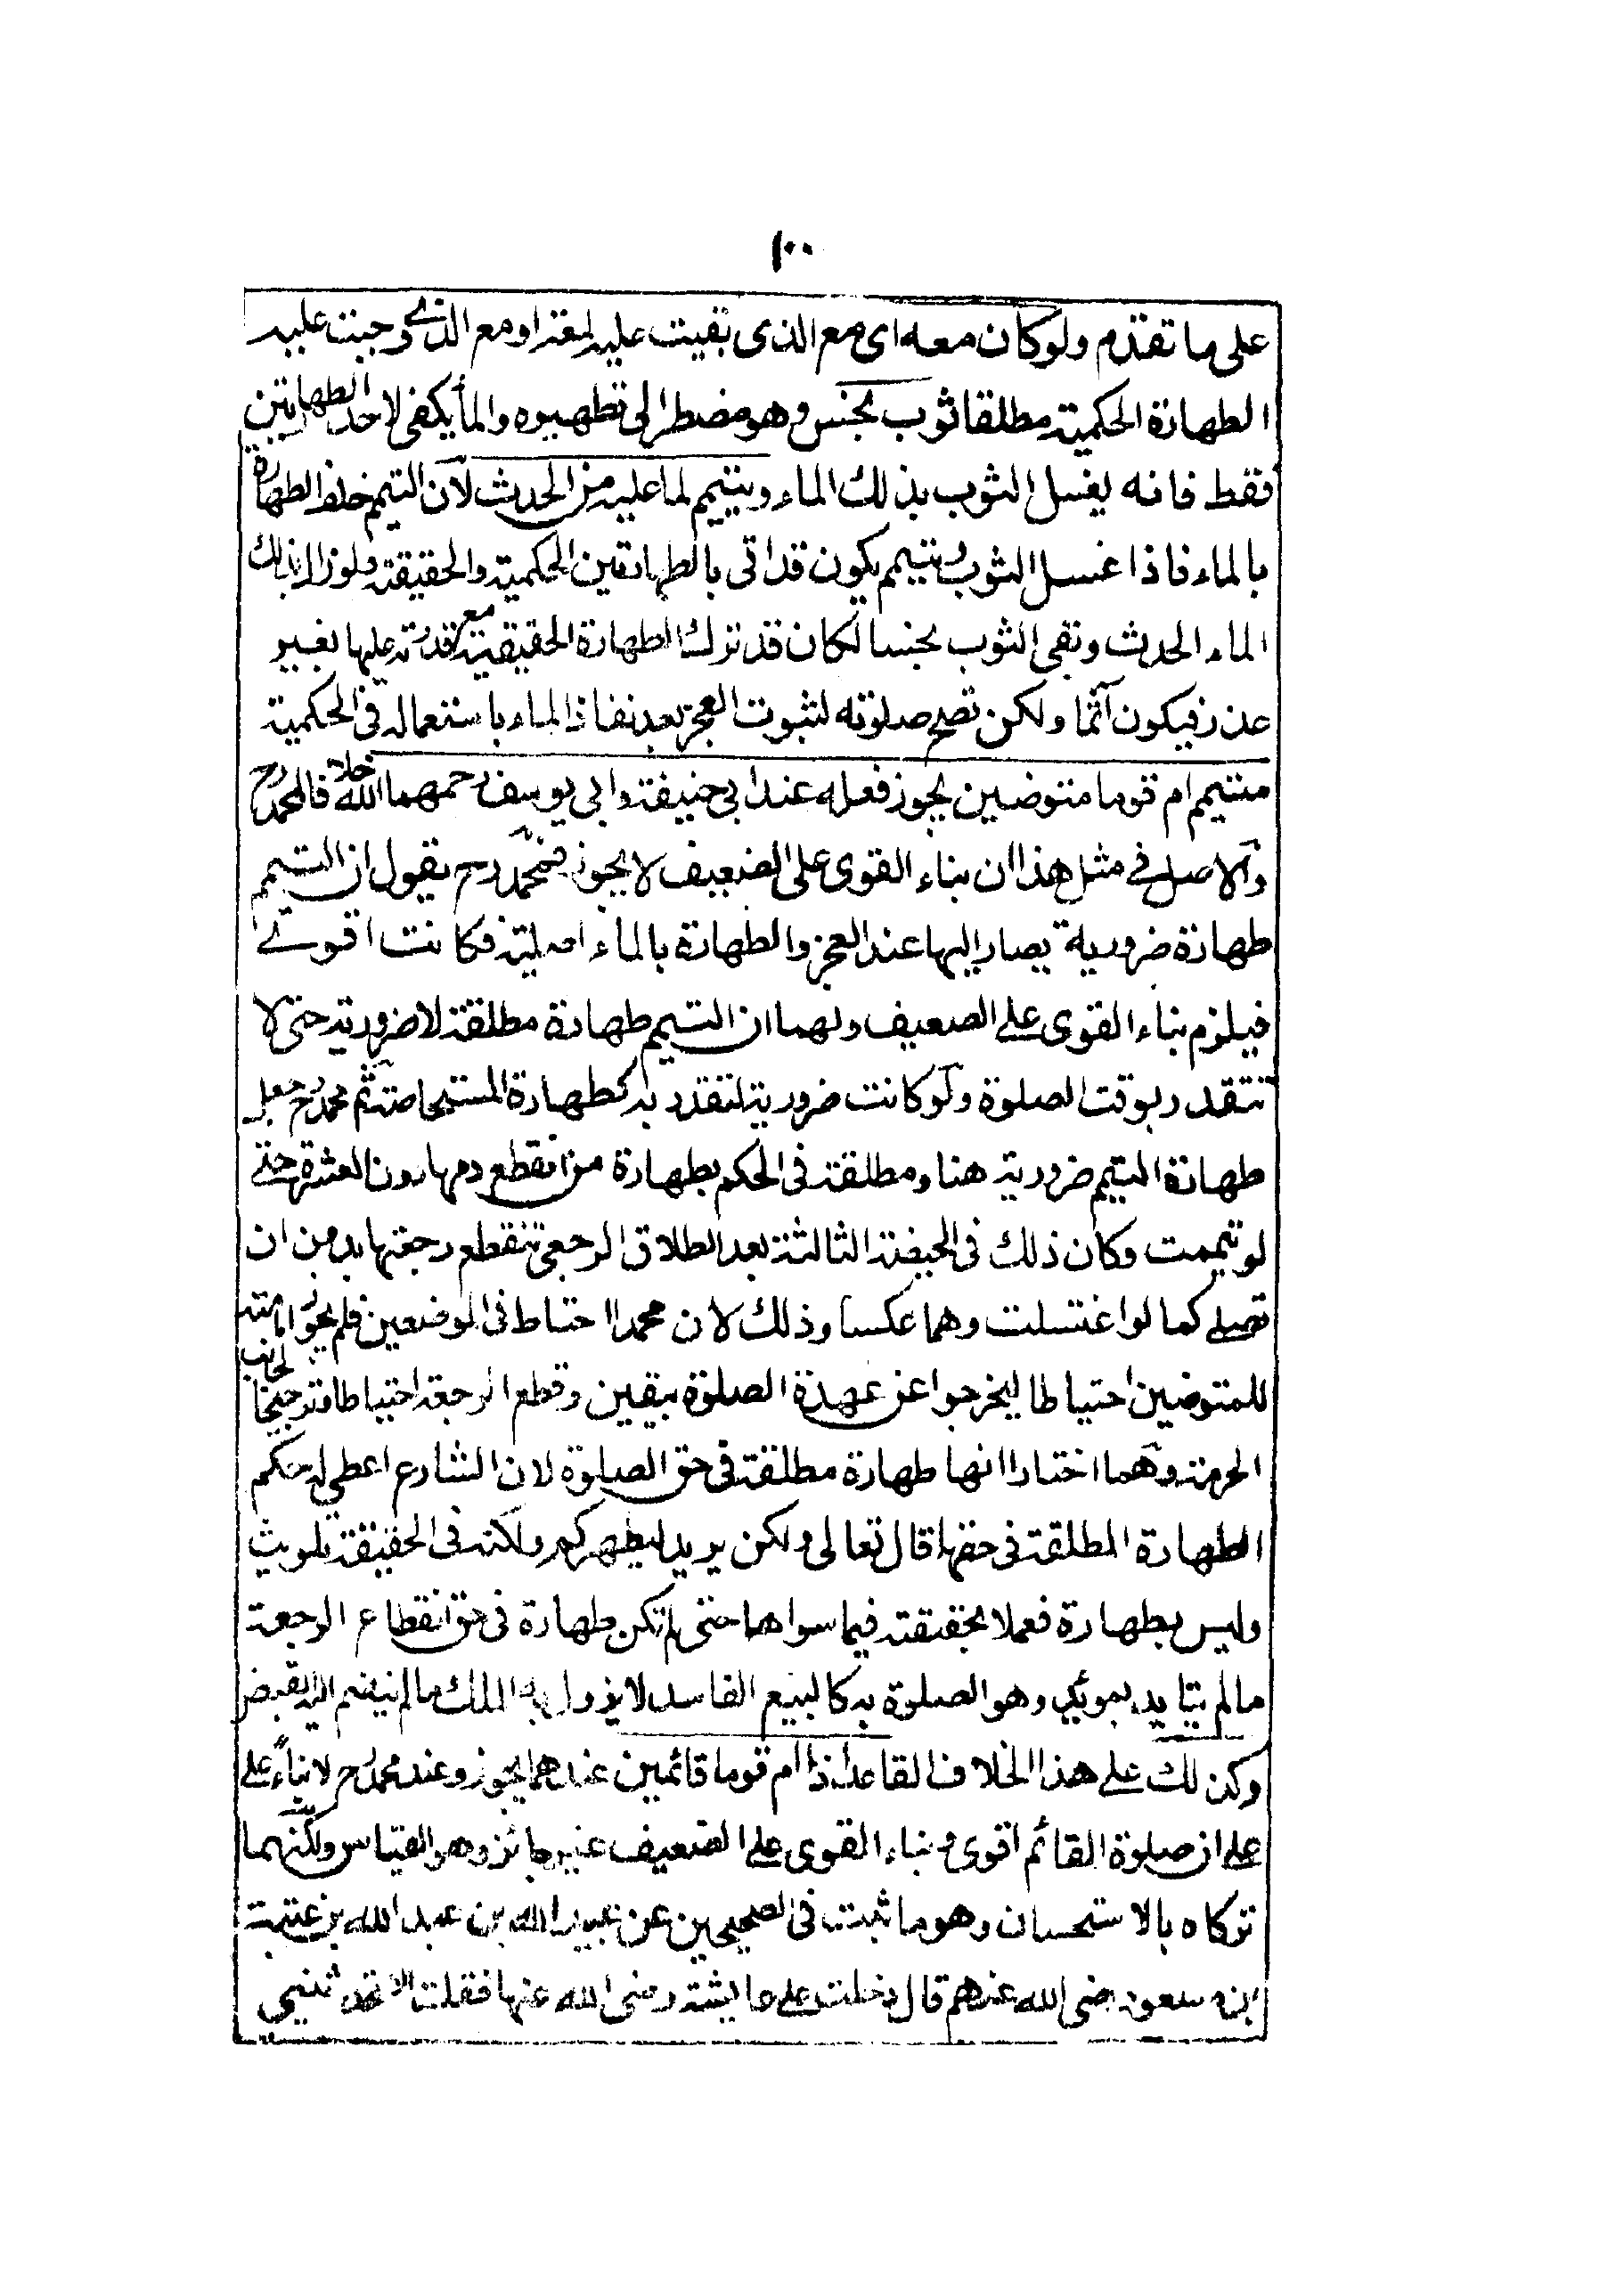 ١٠٠
على ما تقدم ولو كان معه اى مع الذى بقيت عليه لمعة او مع الذے وجبت عليه
الطهارة الحكمية مطلقا ثوب نجس وهو مضطر الى تطهيره والمأ يكفى لاحد الطهارتين
فقط فانه يغسل الثوب بذلك الماء ويتيمم لما عليه من الحدث لان التيمم خلف الطهارة
بالماء فاذا غسل الثوب وتيمم يكون قد اتى بالطهارتين الحكمية والحقيقة ولو زال بذلك
الماء الحدث وبقى الثوب نجسا لكان قد ترك الطهارة الحقيقية مع قدرته عليها بغير
عذر فيكون آثما ولكن تصح صلوته لثبوت العجز بعد نفاذ الماء باستعماله فى الحكمية
متيمم ام قوما متوضين يجوز فعله عند ابى حنيفة وابى يوسف رحمهما الله خلافا لمحمد رح
والاصل فى مثل هذا ان بناء القوى على الضعيف لا يجوز فمحمد رح يقول ان التيمم
طهارة ضرورية يصار اليها عند العجز والطهارة بالماء اصلية فكانت اقوے
فيلزم بناء القوى على الضعيف ولهما ان التيمم طهارة مطلقة لا ضرورية حتى لا
تتقدر بوقت الصلوة ولو كانت ضرورية لتقدر به كطهارة المستحاضة ثم محمد رح جعل
طهارة التيمم ضرورية هنا ومطلقة فى الحكم بطهارة من انقطع دمها دون العشرة حتى
لو تيممت وكان ذلك فى الحيضة الثالثة بعد الطلاق الرجعى تنقطع رجعتها بدون ان
تصلى كما لو اغتسلت وهما عكسا وذلك لان محمدا احتاط فى الموضعين فلم يجوز امامته
للمتوضين احتياطا ليخرجوا عن عهدة الصلوة بيقين وقطع الرجعة احتياطا وترجيحا لجانب
الحرمة وهما اختارا انها طهارة مطلقة فى حق الصلوة لان الشارع اعطى له حكم
الطهارة المطلقة فى حقها قال تعالى ولكن يريد ليطهركم ولكنه فى الحقيقة تلويث
وليس بطهارة فعملا بحقيقته فيما سواها حتى لم تكن طهارة فى حق انقطاع الرجعة
مالم يتايد بمويد وهو الصلوة به كالبيع الفاسد لا يزول به الملك مالم ينضم اليه القبض
وكذلك على هذا الخلاف القاعد اذا ام قوما قائمين عندهما يجوز وعند محمد رح لا بناءً على
على ان صلوة القائم اقوى وبناء القوى على الضعيف غير جائز وهو القياس ولكنهما
تركاه بالاستحسان وهو ما ثبت فى الصحيحين عن عبيد الله بن عبد الله بن عتبة
بن مسعود رضى الله عنهم قال دخلت على عايشة رضى الله عنها فقلت الا تحدثنيى